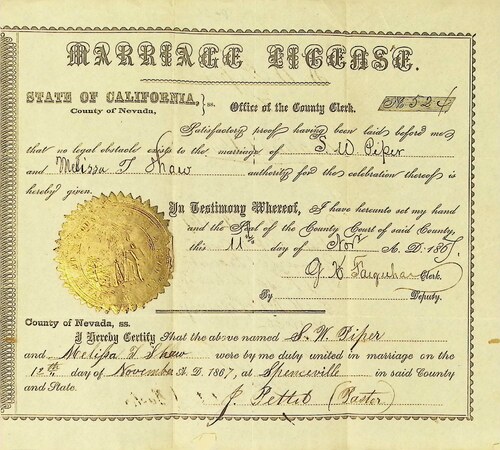 MARRIAGE LICENSE.
STATE OF CALIFORNIA, } ss. Office of the County Clerk. No. 524
County of Nevada,
Satisfactory proof having been laid before me
that no legal obstacle exists to the marriage of S. W. Piper
and Melissa T Shaw authority for the celebration thereof is
hereby given.
In Testimony Whereof, I have hereunto set my hand
and the Seal of the County Court of said County,
this 11th day of Nov A. D. 1867.
G. K. Farquhar Clerk.
By Deputy.
County of Nevada, ss.
I Hereby Certify That the above named S. W. Piper
and Melissa T Shaw were by me duly united in marriage on the
12th day of November A. D. 1867, at Spenceville in said County
and State.
J. Pettit (Pastor)